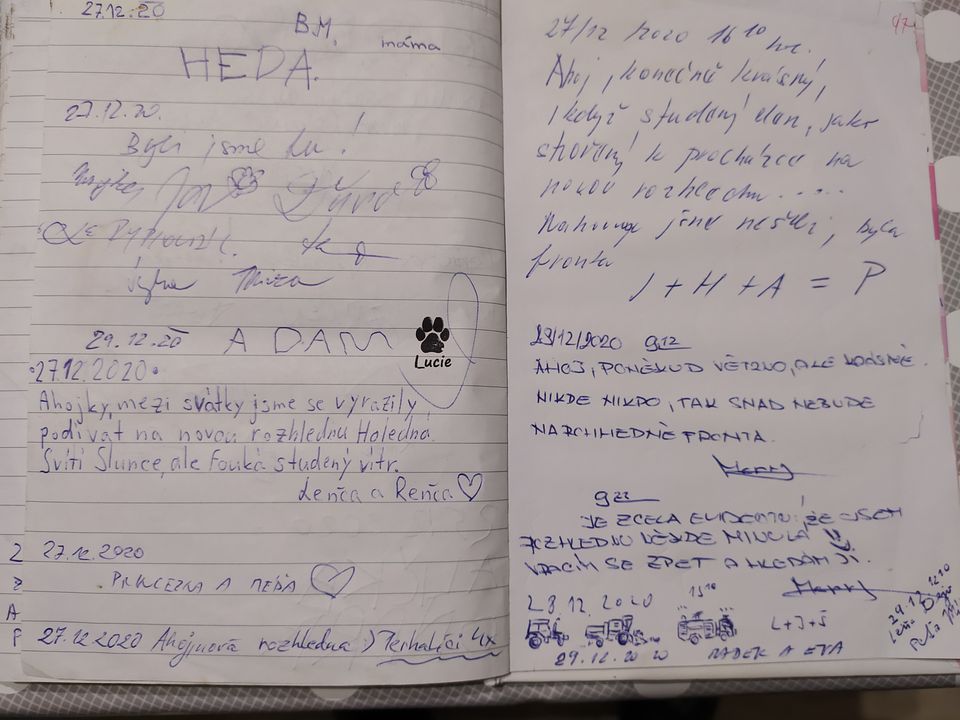 27.12.20
B.M. máma
HEDA.
27.12.20.
Byli jsme tu!
29.12.20 ADAM
Lucie
27.12.2020
Ahojky, mezi svátky jsme se vyrazily
podívat na novou rozhlednu Holedná.
Svítí Slunce, ale fouká studený vítr.
Lenča a Renča
27.12.2020
A MÉĎA
27.12.2020 Ahojnová rozhledna :) 4x
Z
Ž
A
P
27/12 2020 16 10 hr.
Ahoj, konečně krásný,
i když studený den, jako
stvořený k procházce na
novou rozhlednu.....
Nahoru jsme nešli, byla
fronta
J + H + A = P
29/12/2020 9 12
AHOJ, PONĚKUD VĚTRNO, ALE KRÁSNĚ.
NIKDE NIKDO, TAK SNAD NEBUDE
NA ROZHLEDNĚ FRONTA.
Harry
9 22
JE ZCELA EVIDENTNÍ, ŽE JSEM
ROZHLEDNU NĚKDE MINUL A
VRACÍM SE ZPĚT A HLEDÁM JI.
Harry
28.12.2020 15 10
L+J+Š
29.12.2020 RADEK A EVA
29.12 12 10